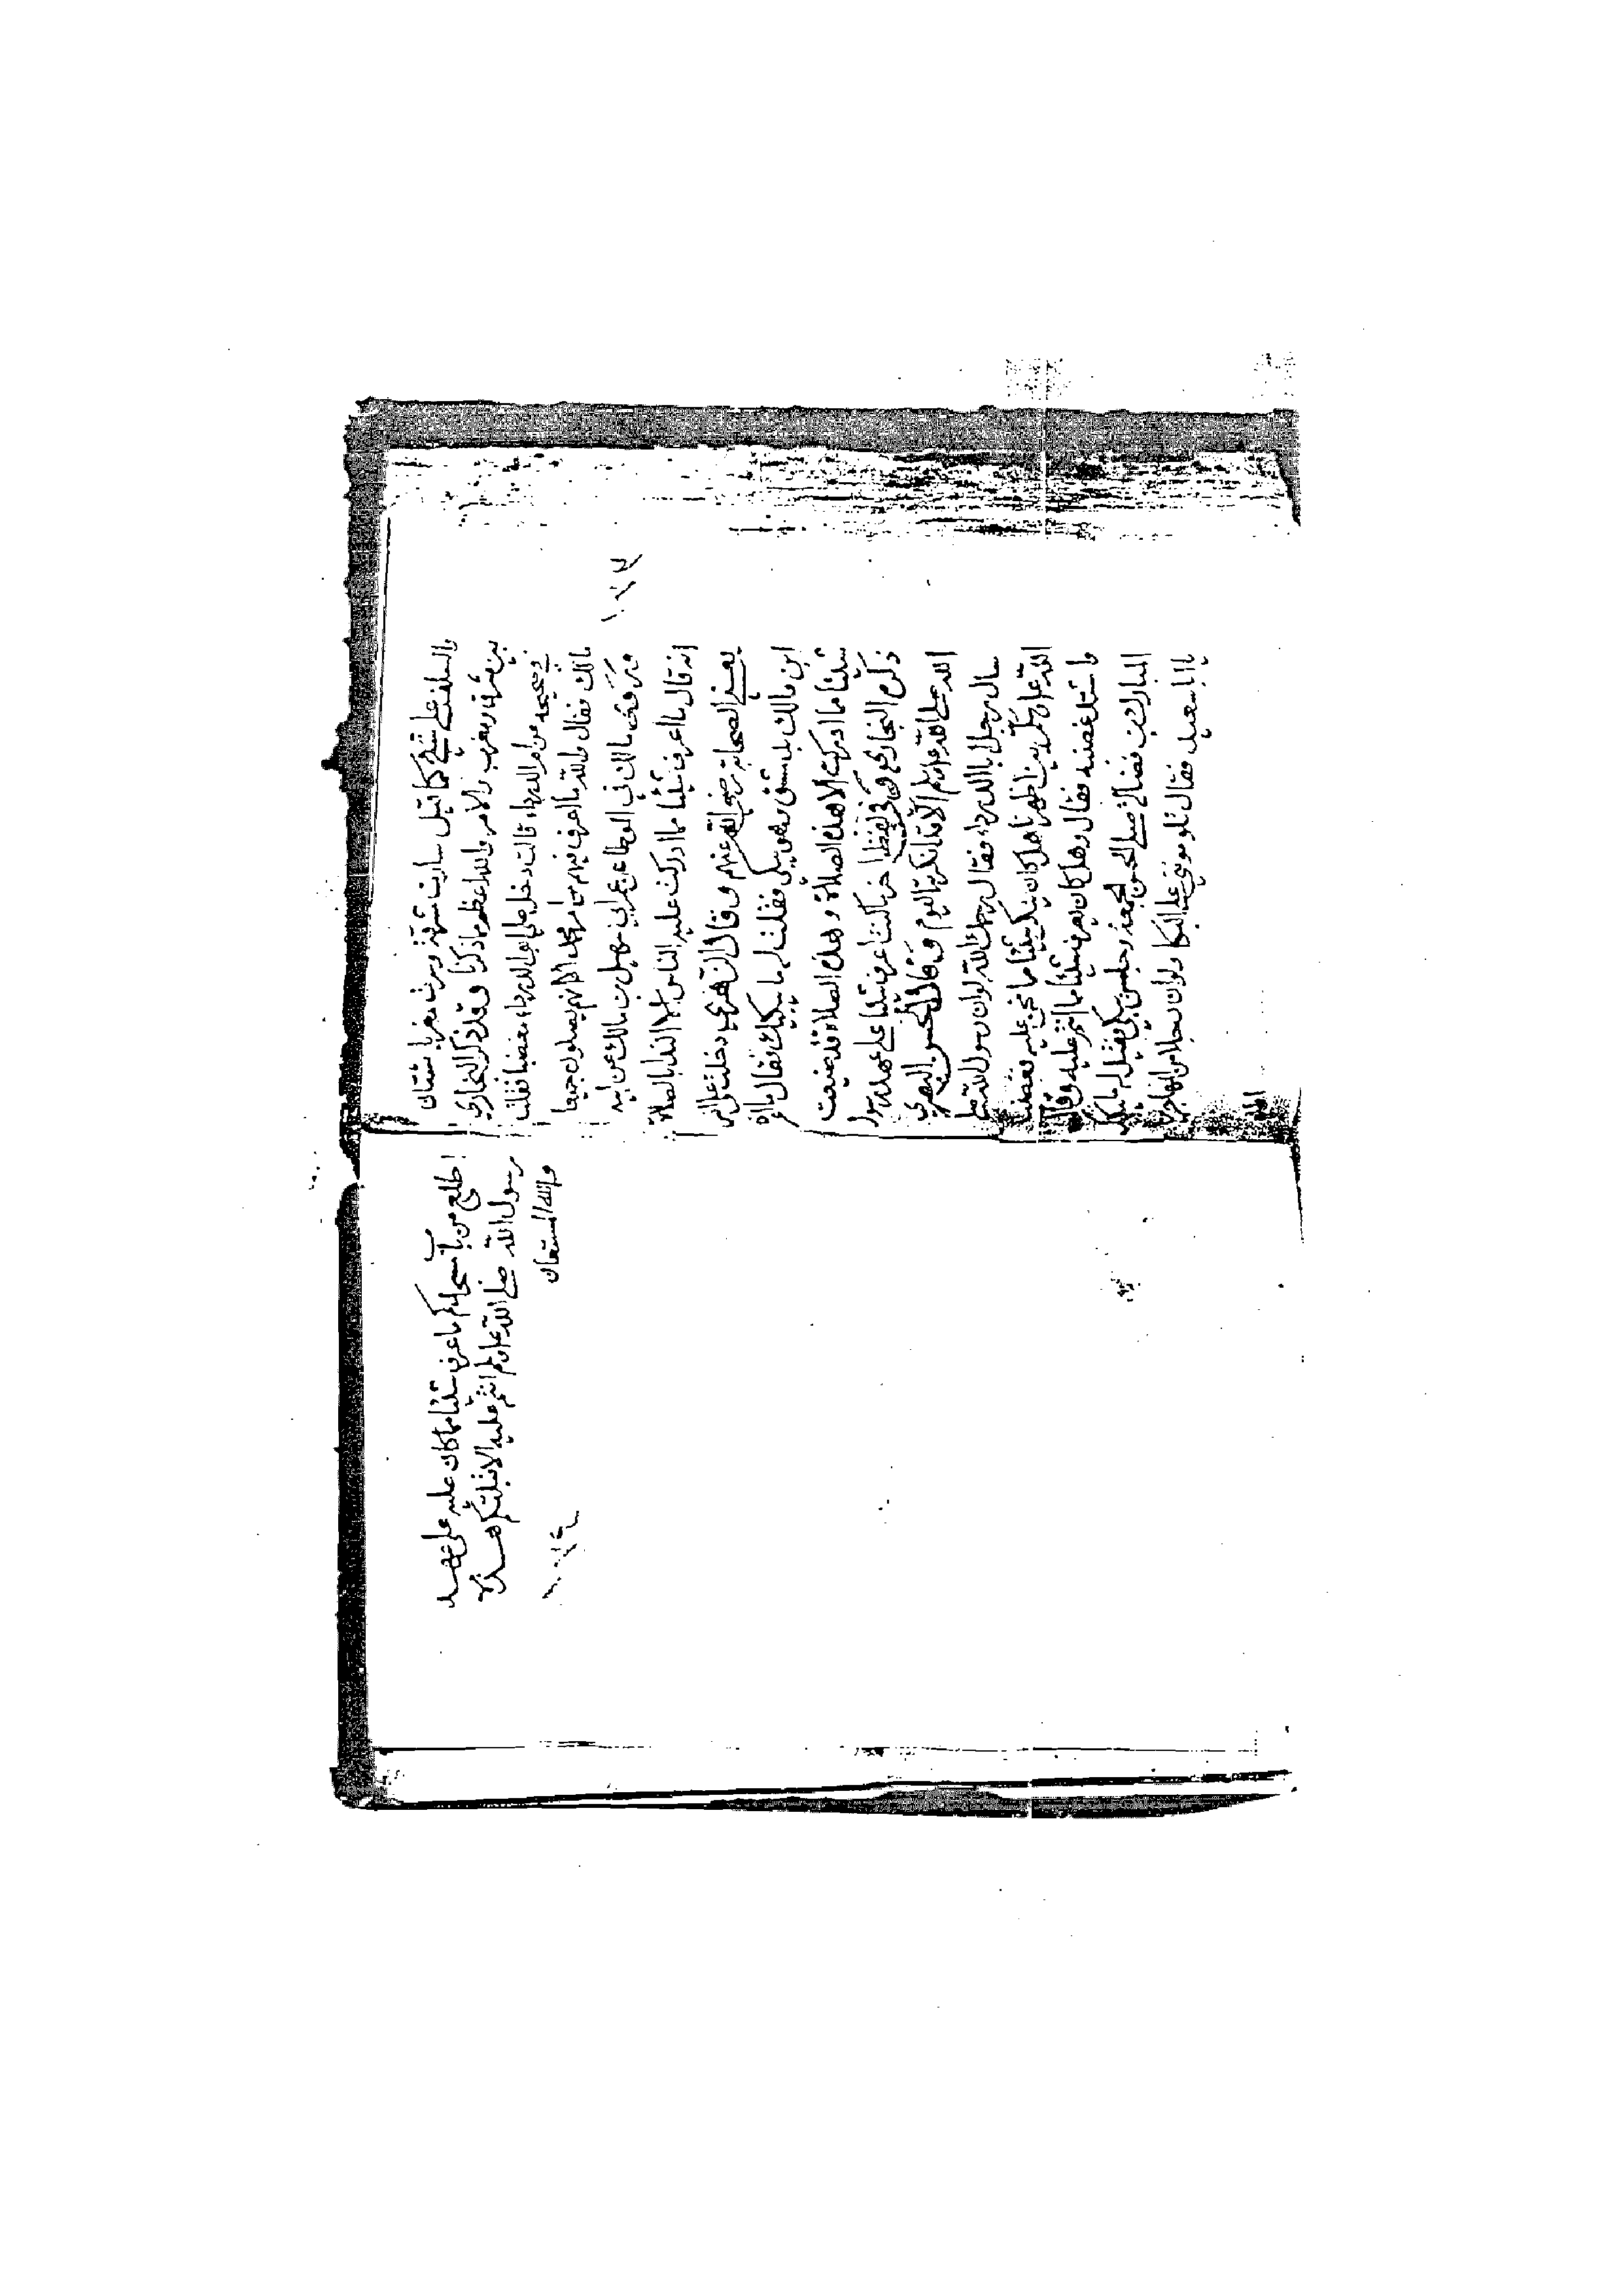 والسلف على شيء كما قيل سارت مشرقة وسرت مغربا شتان
بين مشرق ومغرب والامر والله اعظم ما ذكرنا وقد ذكر البخاري
في صحيحه عن ام الدرداء قالت دخل علي ابو الدرداء مغضبا فقلت
مالك فقال والله ما اعرف فيهم من امر محمد الا انهم يصلون جميعا
وروى مالك في الموطا عن عمه ابي سهيل بن مالك عن ابيه
انه قال ما اعرف شيئا مما ادركت عليه الناس الا الندا بالصلاة
يعني الصحابة رضي الله عنهم وقال الزهري دخلت على انس
ابن مالك بدمشق وهو يبكي فقلت له ما يبكيك فقال ما اعرف
شيئا مما ادركت الا هذه الصلاة وهذه الصلاة قد ضيعت
ذكره البخاري وفي لفظ اخر ما كنت اعرف شيئا على عهد رسول
الله صلى الله عليه وسلم الا قد انكرته اليوم وقال الحسن البصري
سال رجل ابا الدرداء فقال رحمك الله لو ان رسول الله صلى
الله عليه وسلم بين اظهرنا هل كان ينكر شيئا مما نحن عليه فغضب
واشتد غضبه فقال وهل كان يعرف شيئا مما انتم عليه وقال
المبارك بن فضالة صلى الحسن الجمعة وجلس يبكي فقيل له ما يبكيك
يا ابا سعيد فقال تلوموني على البكا ولو ان رجلا من المهاجرين
اطلع من باب مسجدكم ما عرف شيئا مما كان عليه على عهد
رسول الله صلى الله عليه وسلم انتم عليه الا قبلتكم هذه
والله المستعان